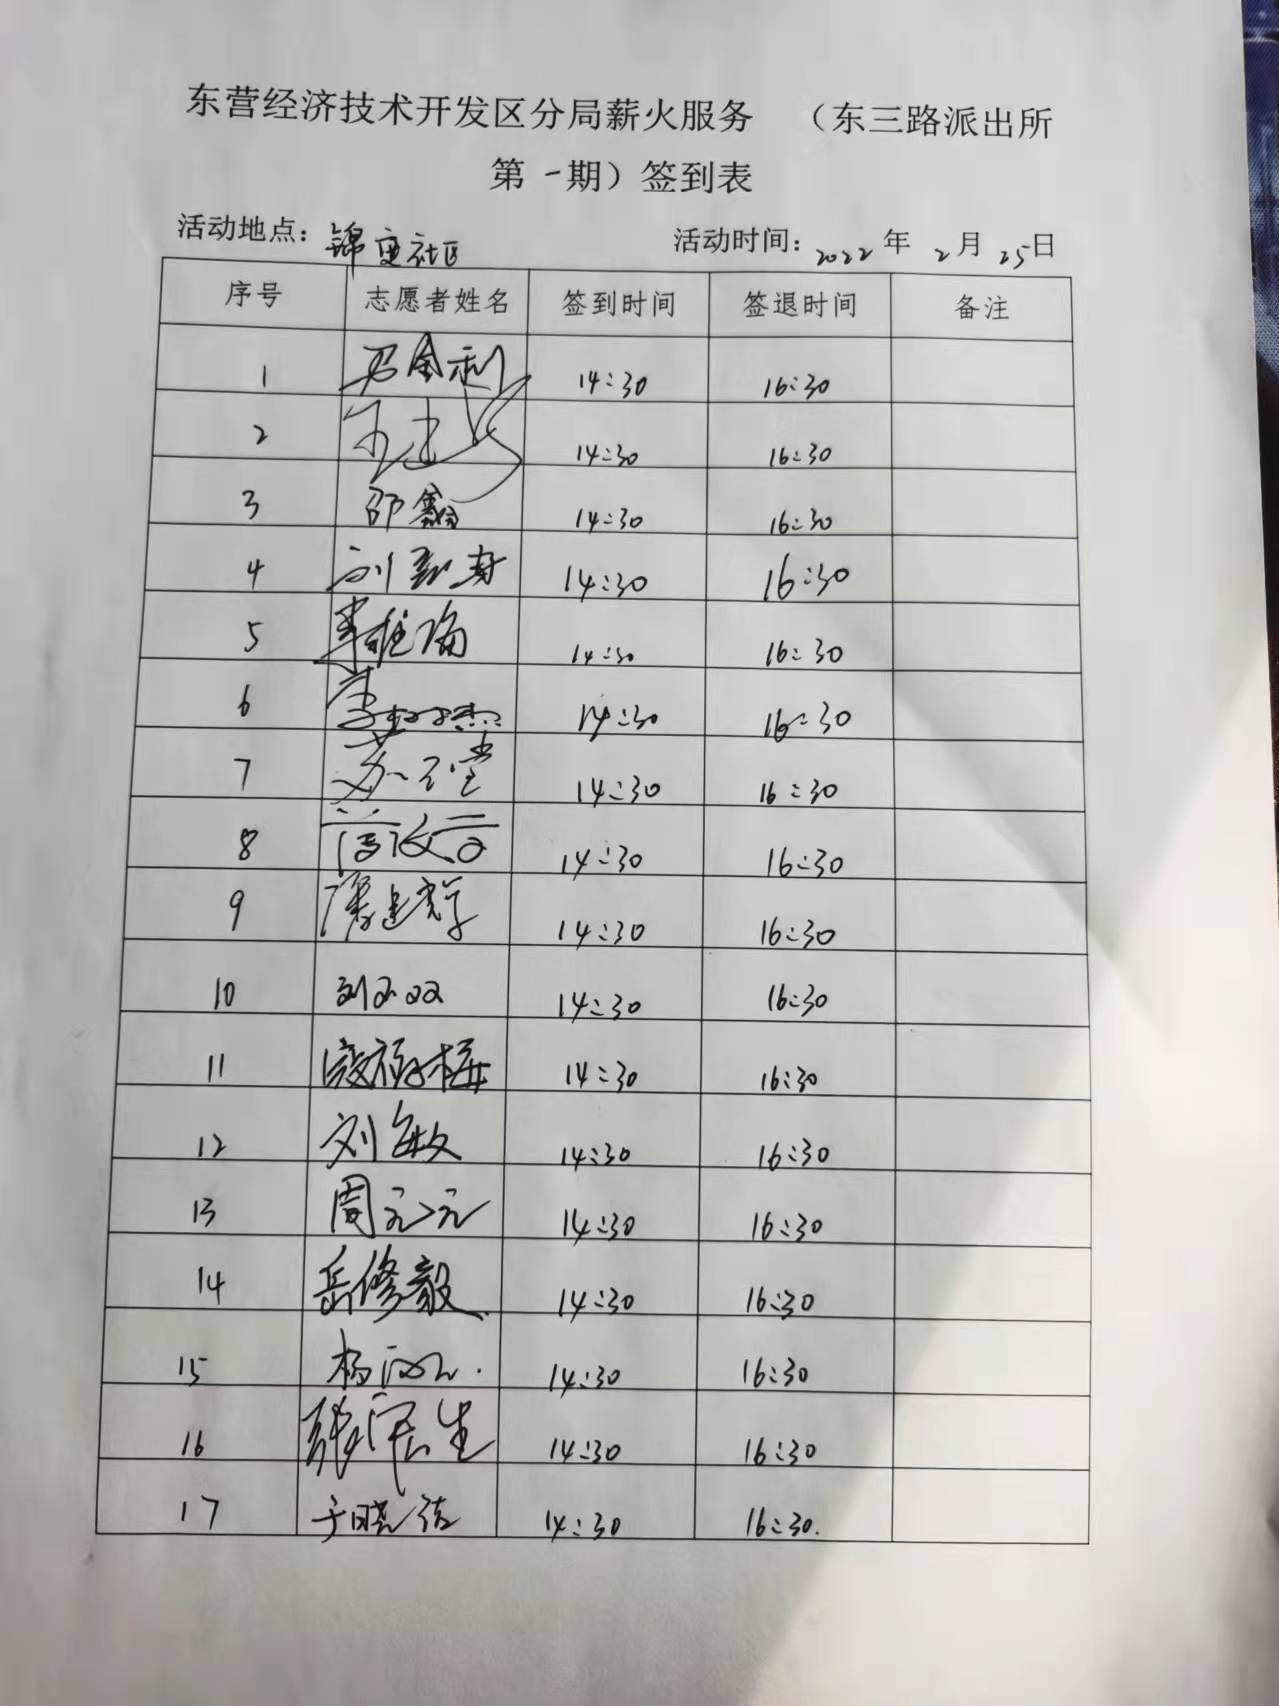 东营经济技术开发区分局薪火服务 （东三路派出所
第一期）签到表
活动地点：锦 社区 活动时间：2022年2月25日
序号 志愿者姓名 签到时间 签退时间 备注
1 金利 14:30 16:30
2 14:30 16:30
3 邵鑫 14:30 16:30
4 刘 14:30 16:30
5 14:30 16:30
6 李 14:30 16:30
7 苏 堂 14:30 16:30
8 14:30 16:30
9 14:30 16:30
10 刘 双 14:30 16:30
11 梅 14:30 16:30
12 刘敏 14:30 16:30
13 周元元 14:30 16:30
14 岳修毅 14:30 16:30
15 杨 14:30 16:30
16 张 生 14:30 16:30
17 于晓洁 14:30 16:30